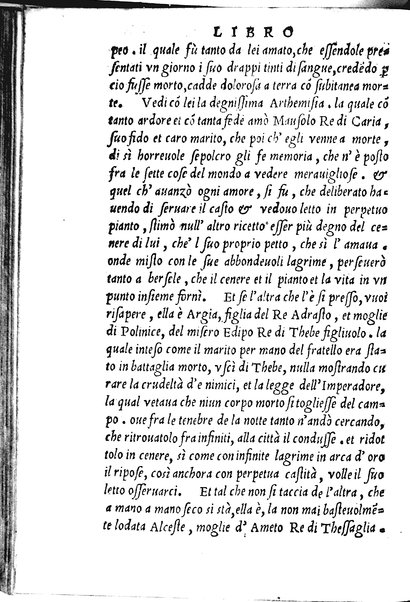 LIBRO
peo. il quale fù tanto da lei amato, che eſſendole pre
ſentati vn giorno i ſuo drappi tinti di ſangue, credẽdo ꝑ
cio fuſſe morto, cadde doloroſa a terra cõ ſubitanea mor-
te. Vedi cõ lei la degniſſima Arthemiſia. la quale cõ
tanto ardore et cõ tanta fede amò Mauſolo Re di Caria,
ſuo fido et caro marito, che poi ch' egli venne a morte,
di sì horreuole ſepolcro gli fe memoria, che n' è poſto
fra le ſette coſe del mondo a vedere merauiglioſe. &
quel ch' auanzò ogni amore, ſi fù, che deliberato ha-
uendo di ſeruare il caſto & vedouo letto in perpetuo
pianto, ſtimò null' altro ricetto eſſer più degno del ce-
nere di lui, che'l ſuo proprio petto, che sì l' amaua.
onde miſto con le ſue abbondeuoli lagrime, perſeuerò
tanto a berſele, che il cenere et il pianto et la vita in vn
punto inſieme fornì. Et ſe l'altra che l'è ſi preſſo, vuoi
riſapere, ella è Argia, figlia del Re Adraſto, et moglie
di Polinice, del miſero Edipo Re di Thebe figliuolo. la
quale inteſo come il marito per mano del fratello era ſta-
to in battaglia morto, vſcì di Thebe, nulla moſtrando cu
rare la crudeltà d'e nimici, et la legge dell'Imperadore,
la qual vetaua che niun corpo morto ſi toglieſſe del cam-
po. oue fra le tenebre de la notte tanto n'andò cercando,
che ritrouatolo fra infiniti, alla città il conduſſe. et ridot
tolo in cenere, sì come con infinite lagrime in arca d' oro
il ripoſe, così anchora con perpetua caſtità, volle il ſuo
letto oſſeruarci. Et tal che non ſi taccia de l'altra, che
a mano a mano ſeco si stà, ella è, la non mai baſteuolmẽ-
te lodata Alceſte, moglie d' Ameto Re di Theſſaglia.